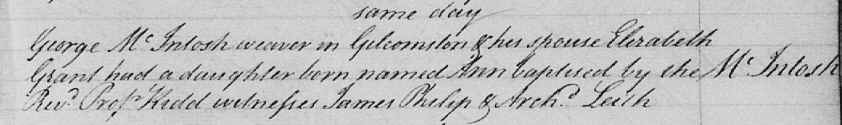 same day
George Mc Intosh weaver in Gilcomston & his spouse Elizabeth
Grant had a daughter born named Ann baptised by the Mc Intosh
Revd. Profr. Kidd witnesses James Philip & Archd. Leith